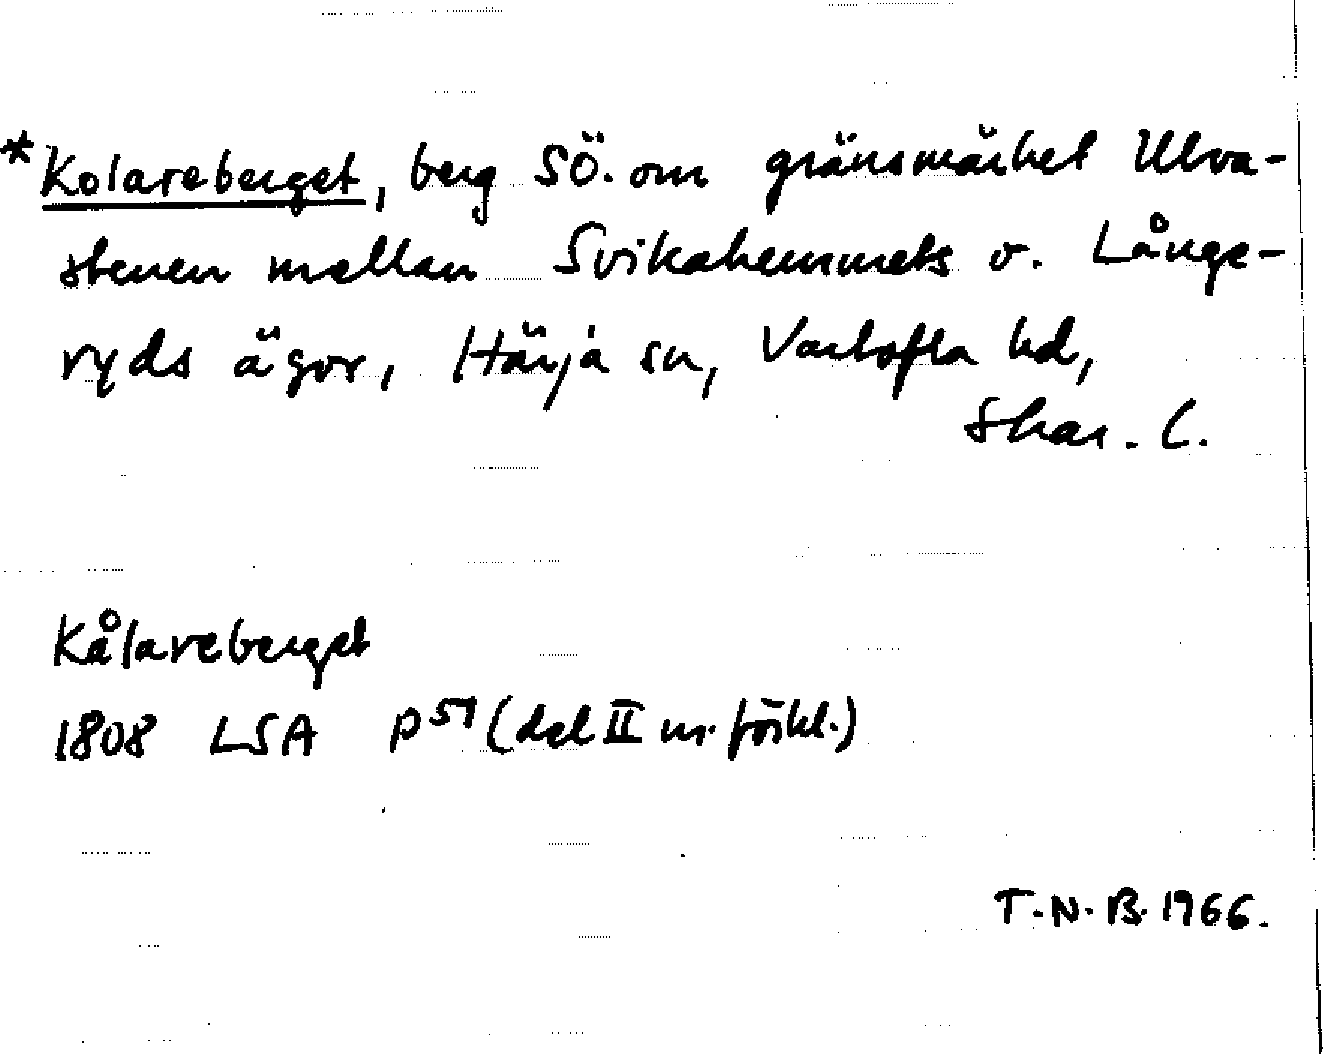 *Kolareberget, berg SÖ. om gränsmärket Ulva-
stenen mellan Svikahemmets o. Långe-
ryds ägor, Härja sn, Vartofta hd,
Skar. l.
Kålareberget
1808 LSA P 51 (del II m. förkl.)
T.N.B. 1966.